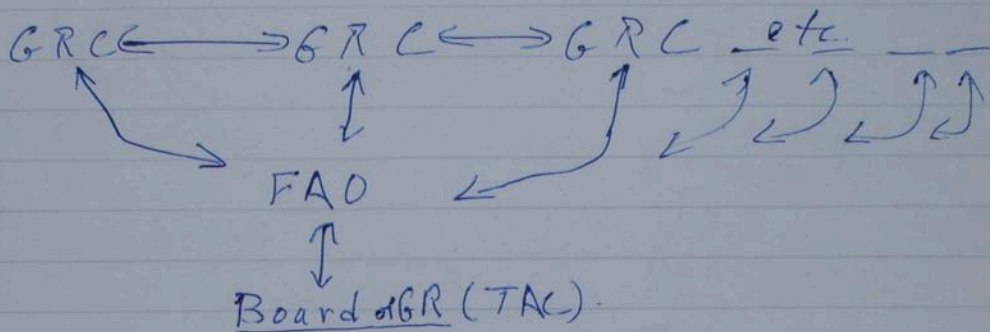 GRC GRC GRC etc.
FAO
Board of GR (TAC).